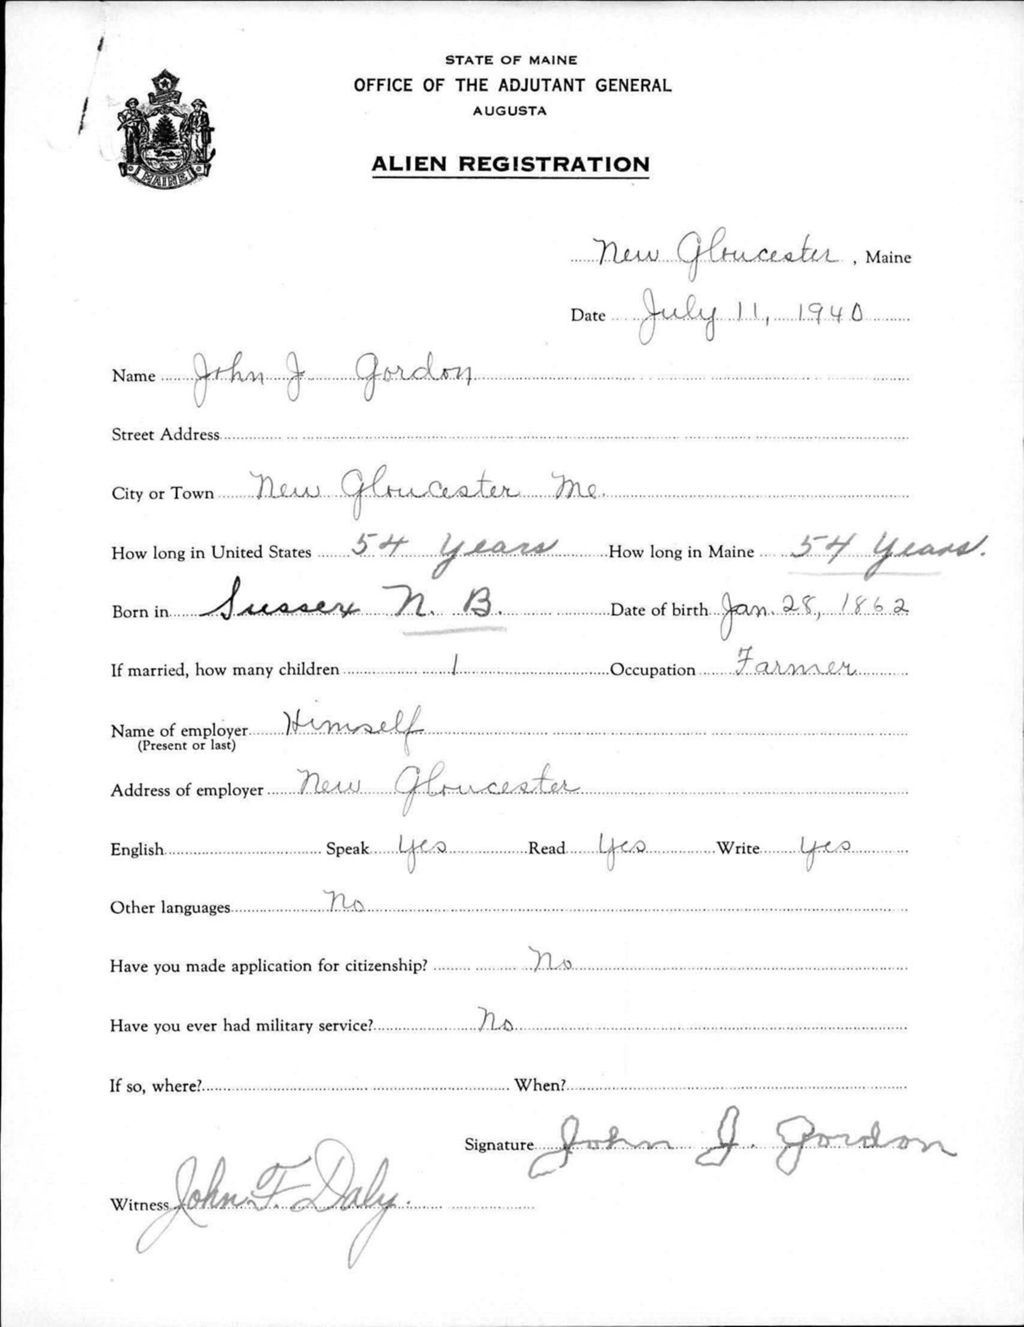 STATE OF MAINE
OFFICE OF THE ADJUTANT GENERAL
AUGUSTA
MAINE
ALIEN REGISTRATION
New Gloucester, Maine
Date July 11, 1940
Name John J Gordon
Street Address
City or Town New Gloucester Me.
How long in United States 54 Years How long in Maine 54 Years.
Born in Sussex N. B. Date of birth Jan. 28, 1862
If married, how many children 1 Occupation Farmer
Name of employer Himself
(Present or last)
Address of employer New Gloucester
English Speak Yes Read Yes Write Yes
Other languages No
Have you made application for citizenship? No
Have you ever had military service? No
If so, where? When?
Signature John J. Gordon
Witness John F. Daly.